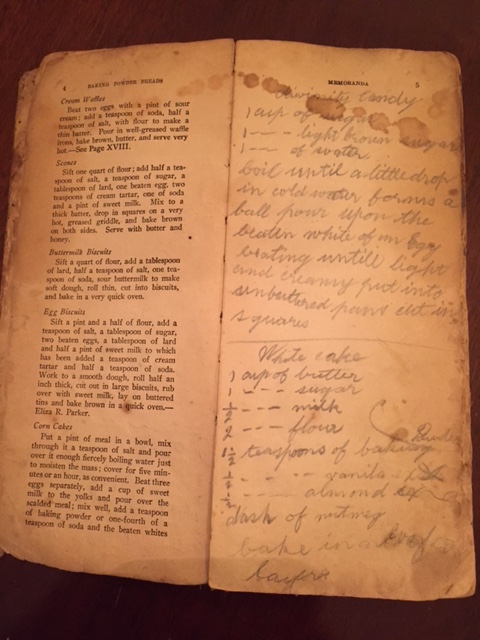 4 BAKING POWDER BREADS
Cream Waffles
Beat two eggs with a pint of sour
cream; add a teaspoon of soda, half a
teaspoon of salt, with flour to make a
thin batter. Pour in well-greased waffle
irons, bake brown, butter, and serve very
hot.—See Page XVIII.
Scones
Sift one quart of flour; add half a tea-
spoon of salt, a teaspoon of sugar, a
tablespoon of lard, one beaten egg, two
teaspoons of cream tartar, one of soda
and a pint of sweet milk. Mix to a
thick batter, drop in squares on a very
hot, greased griddle, and bake brown
on both sides. Serve with butter and
honey.
Buttermilk Biscuits
Sift a quart of flour, add a tablespoon
of lard, half a teaspoon of salt, one tea-
spoon of soda, sour buttermilk to make
soft dough, roll thin, cut into biscuits,
and bake in a very quick oven.
Egg Biscuits
Sift a pint and a half of flour, add a
teaspoon of salt, a tablespoon of sugar,
two beaten eggs, a tablespoon of lard
and half a pint of sweet milk to which
has been added a teaspoon of cream
tartar and half a teaspoon of soda.
Work to a smooth dough, roll half an
inch thick, cut out in large biscuits, rub
over with sweet milk, lay on buttered
tins and bake brown in a quick oven.—
Eliza R. Parker.
Corn Cakes
Put a pint of meal in a bowl, mix
through it a teaspoon of salt and pour
over it enough fiercely boiling water just
to moisten the mass; cover for five min-
utes or an hour, as convenient. Beat three
eggs separately, add a cup of sweet
milk to the yolks and pour over the
scalded meal; mix well, add a teaspoon
of baking powder or one-fourth of a
teaspoon of soda and the beaten whites
MEMORANDA 5
Divinity Candy
1 cup of sugar
1 - - - light brown sugar
1 - - of water
boil until a little drop
in cold water forms a
ball pour upon the
beaten white of an egg
beating untill light
and creamy put into
unbuttered pans cut in
squares
White cake
1 cup of butter
1 - - - sugar
1/2 - - - milk
2 - - flour
1 1/2 teaspoons of baking Powder
1/2 - - - - vanila
1/2 - - - almond
dash of nutmeg
bake in a loaf or
layers